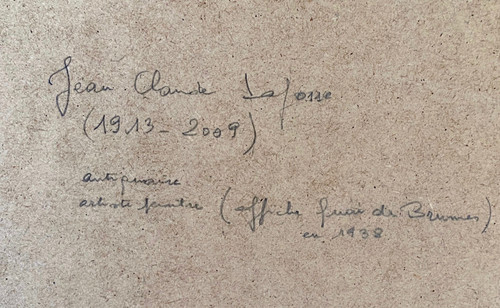 Jean Claude Lafosse
(1913-2009)
antiquaire
artiste peintre (affiche quai des Brumes)
en 1938